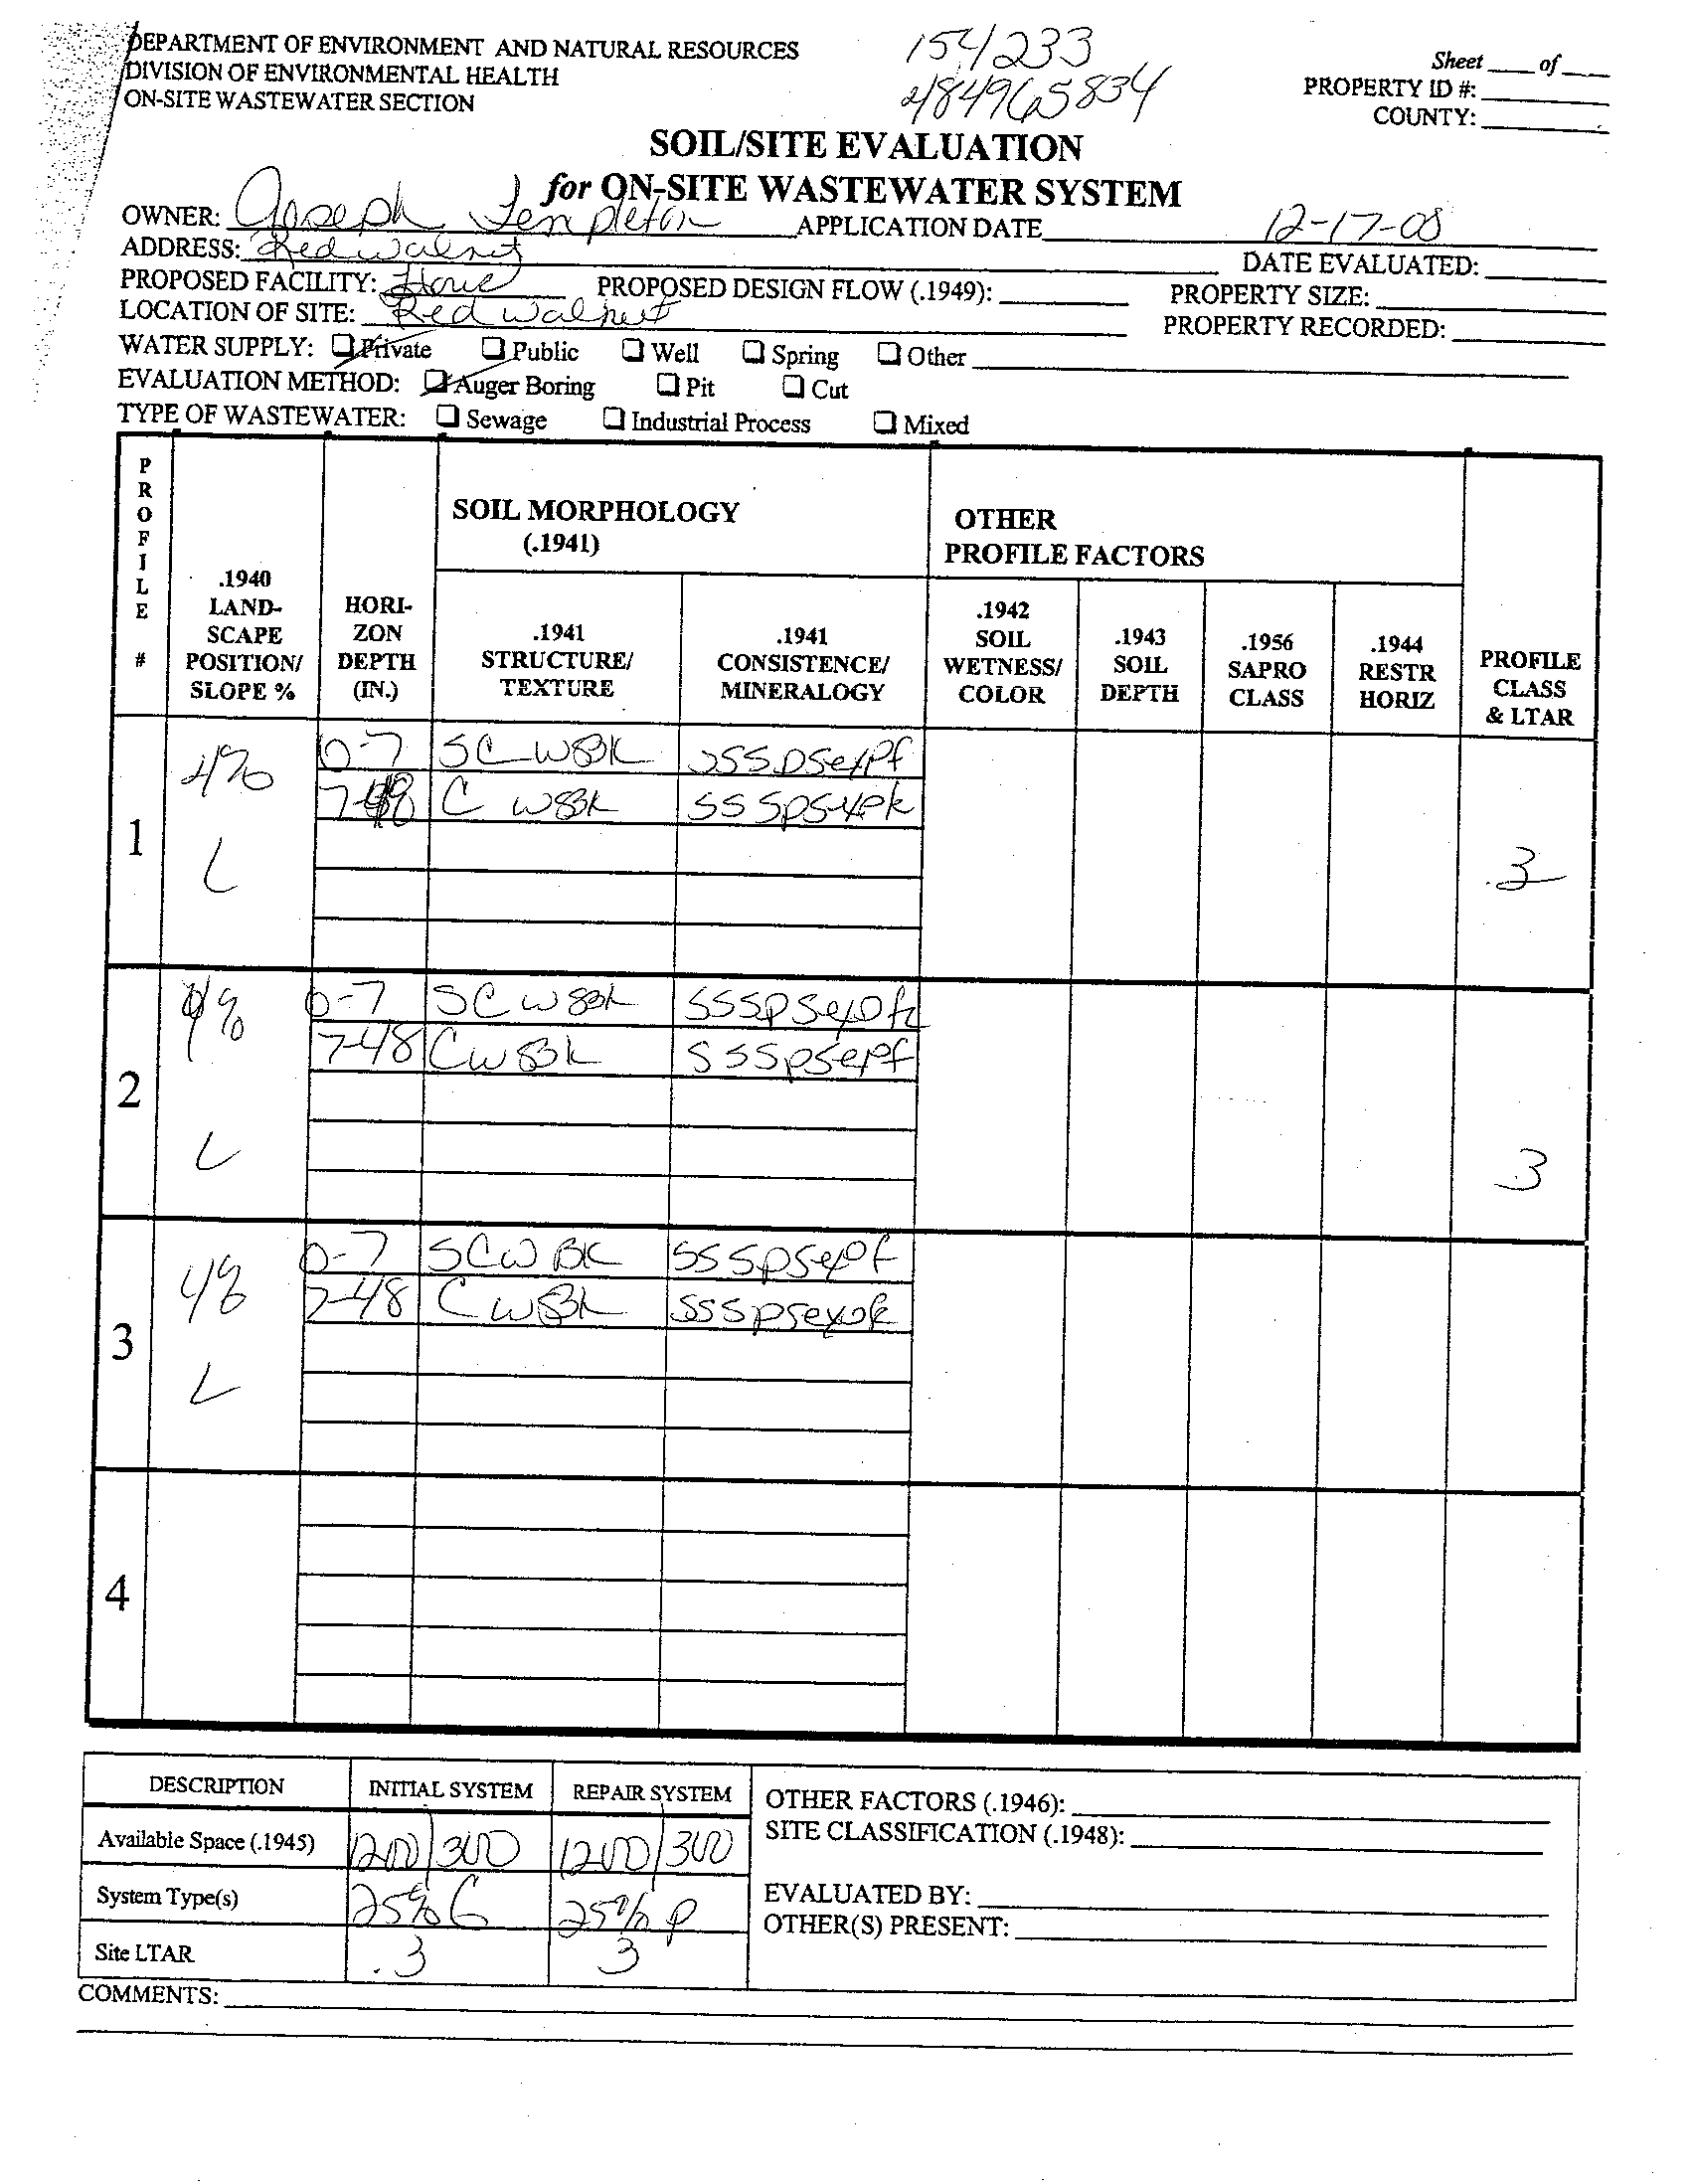 DEPARTMENT OF ENVIRONMENT AND NATURAL RESOURCES
DIVISION OF ENVIRONMENTAL HEALTH
ON-SITE WASTEWATER SECTION
154233
484965834
Sheet ___ of ___
PROPERTY ID #:
COUNTY:
SOIL/SITE EVALUATION
for ON-SITE WASTEWATER SYSTEM
OWNER: Joseph Templeton APPLICATION DATE 12-17-08
ADDRESS: Red Walnut DATE EVALUATED:
PROPOSED FACILITY: House PROPOSED DESIGN FLOW (.1949): PROPERTY SIZE:
LOCATION OF SITE: Red Walnut PROPERTY RECORDED:
WATER SUPPLY: Private Public Well Spring Other
EVALUATION METHOD: Auger Boring Pit Cut
TYPE OF WASTEWATER: Sewage Industrial Process Mixed
PROFILE #
.1940 LAND-SCAPE POSITION/ SLOPE %
HORI-ZON DEPTH (IN.)
SOIL MORPHOLOGY (.1941)
.1941 STRUCTURE/ TEXTURE
.1941 CONSISTENCE/ MINERALOGY
OTHER PROFILE FACTORS
.1942 SOIL WETNESS/ COLOR
.1943 SOIL DEPTH
.1956 SAPRO CLASS
.1944 RESTR HORIZ
PROFILE CLASS & LTAR
1
4%
L
0-7 SC WSBK
7-48 C WSBK
.3
2
4%
L
0-7 SC WSBK
7-48 C WSBK SSSPSexpf
.3
3
4%
L
0-7 SC W BK SSSPSexpf
7-48 C WSBK
4
DESCRIPTION INITIAL SYSTEM REPAIR SYSTEM
Available Space (.1945) 1200/300 1200/300
System Type(s) 25% G 25% P
Site LTAR .3 3
OTHER FACTORS (.1946):
SITE CLASSIFICATION (.1948):
EVALUATED BY:
OTHER(S) PRESENT:
COMMENTS: